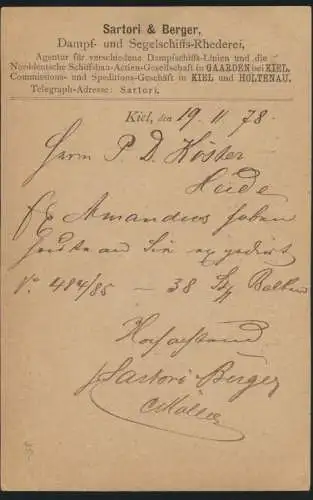 Sartori & Berger,
Dampf- und Segelschiffs-Rhederei,
Agentur für verschiedene Dampfschiffs-Linien und die
Norddeutsche Schiffbau-Actien-Gesellschaft in GAARDEN bei KIEL.
Commissions- und Speditions-Geschäft in KIEL und HOLTENAU.
Telegraph-Adresse: Sartori.
Kiel, den 19. 11 78.
Herrn P D. Köster
Heide
Amandus haben
heute an Sie expedirt
No. 484/85 — 38 Ballen
Hochachtend
Sartori Berger
Möller